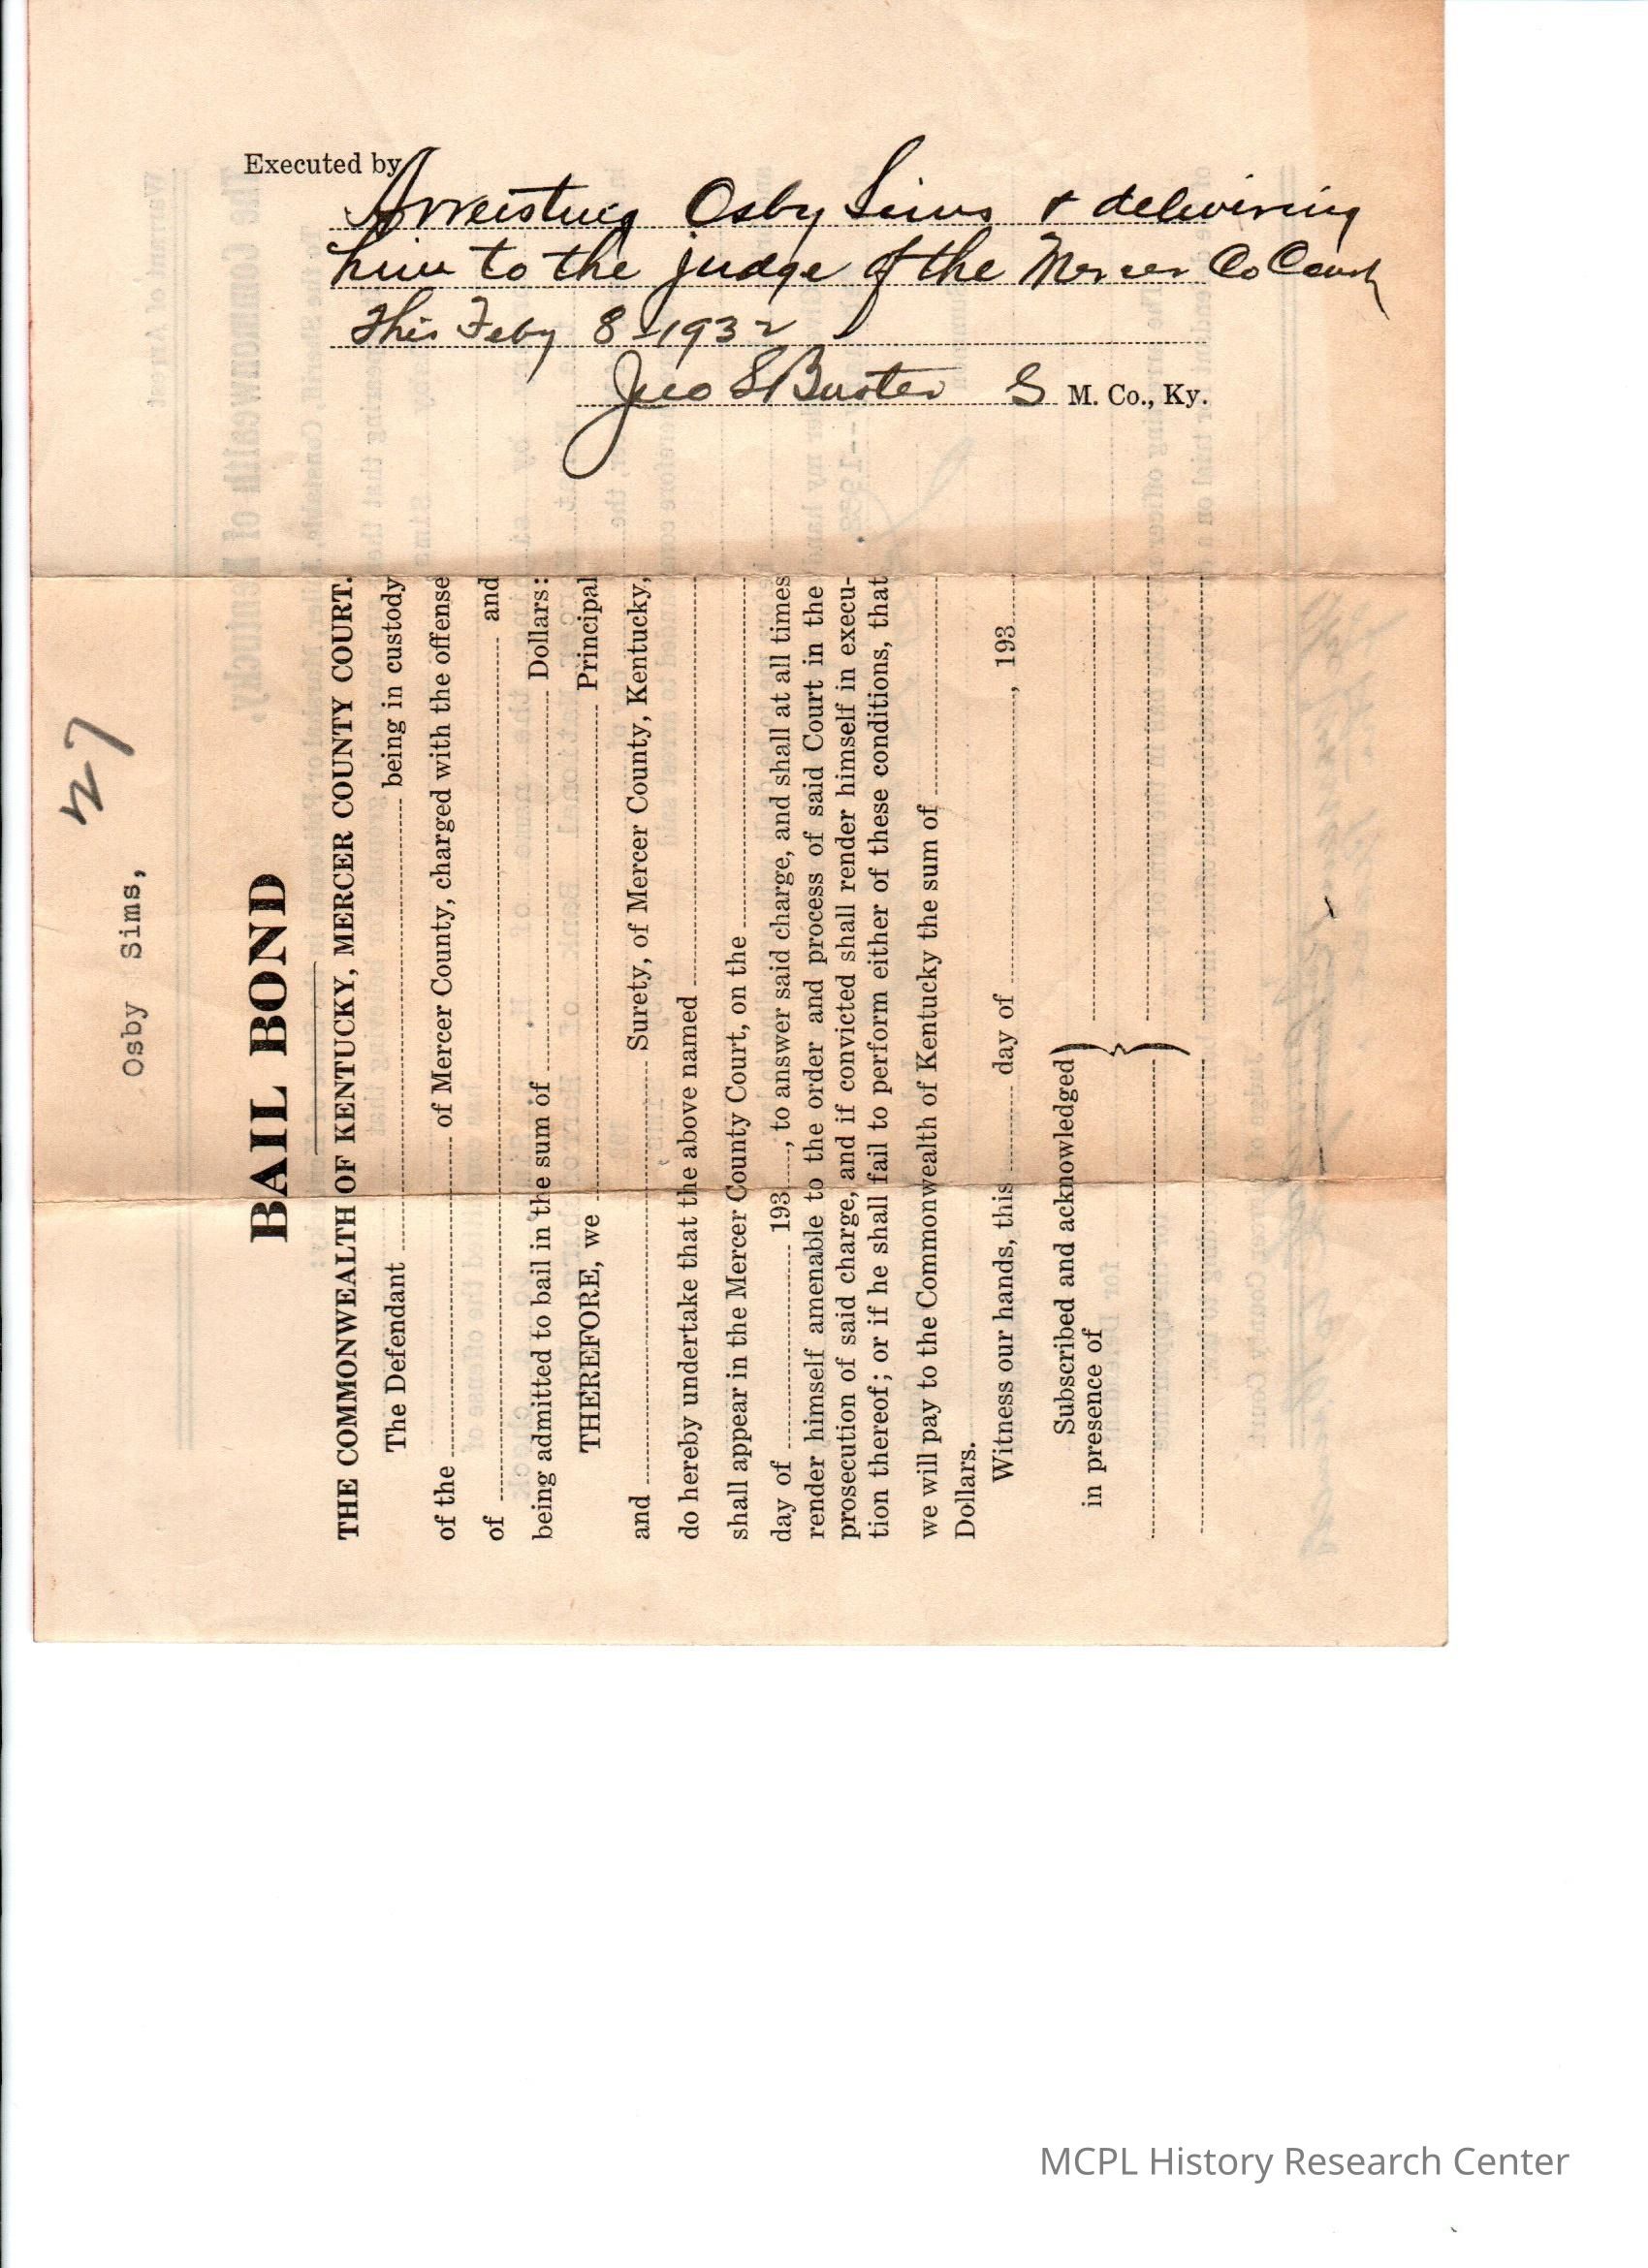 Executed by
Arresting Osby Sims & delivering
him to the judge of the Mercer Co Court
This Feby 8-1932
Geo S Buster S M. Co., Ky.
27
Osby Sims,
BAIL BOND
THE COMMONWEALTH OF KENTUCKY, MERCER COUNTY COURT.
The Defendant being in custody
of the of Mercer County, charged with the offense
of and
being admitted to bail in the sum of Dollars:
THEREFORE, we Principal
and Surety, of Mercer County, Kentucky,
do hereby undertake that the above named
shall appear in the Mercer County Court, on the
day of 193, to answer said charge, and shall at all times
render himself amenable to the order and process of said Court in the
prosecution of said charge, and if convicted shall render himself in execu-
tion thereof; or if he shall fail to perform either of these conditions, that
we will pay to the Commonwealth of Kentucky the sum of
Dollars.
Witness our hands, this day of , 193
Subscribed and acknowledged
in presence of
MCPL History Research Center